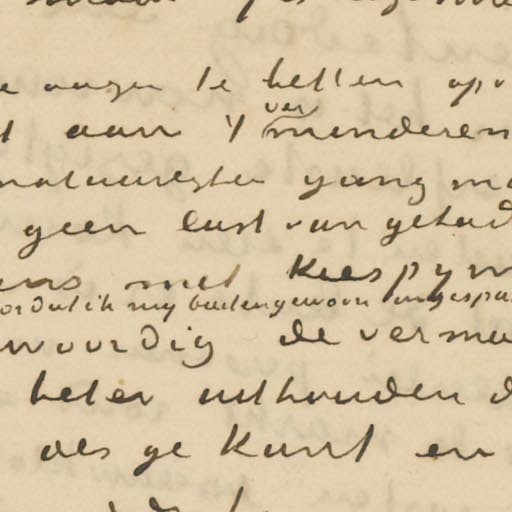 oogen te betten op
aan 't verminderen
natuurlyken gang
geen last van gehad
ens met kiespyn
ordat ik my buitengewoon ingespa
nwoordig de vermoe
beter uithouden d
als ge kunt en